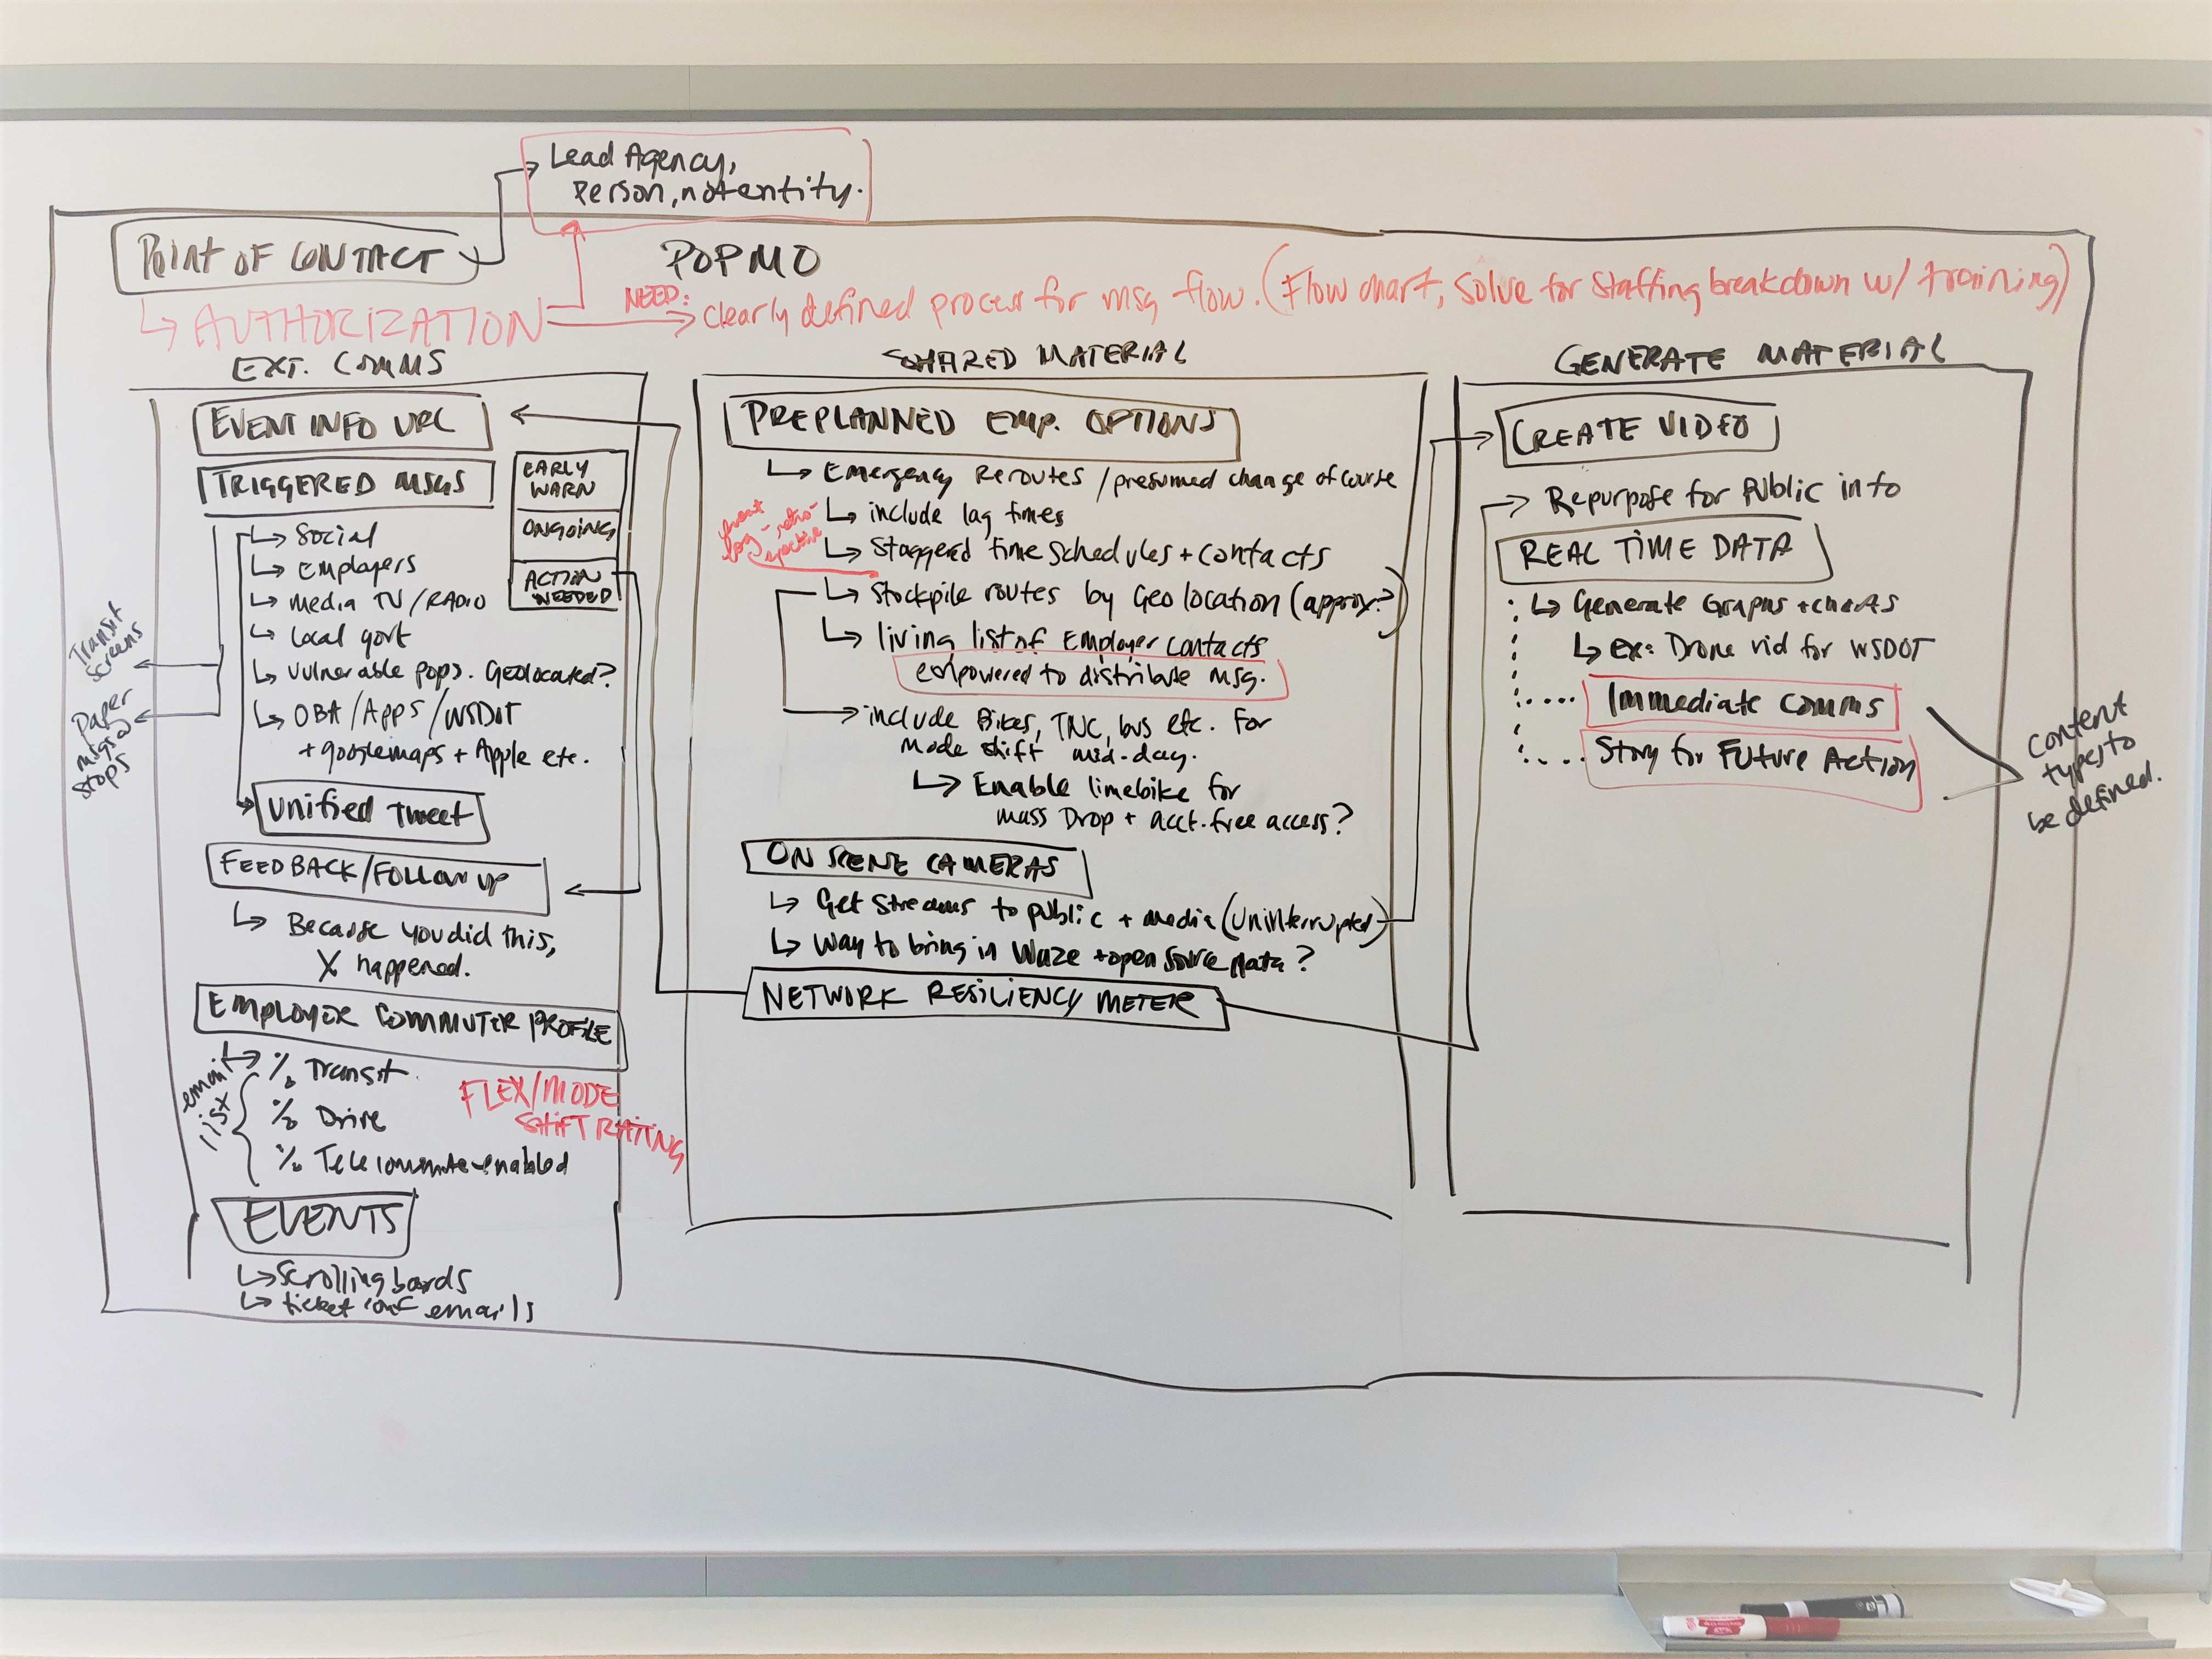 Lead Agency,
Person, not entity.
POINT OF CONTACT
POPMO
NEED:
↳ AUTHORIZATION
clearly defined process for msg flow. (Flow chart, solve for staffing breakdown w/ training)
EXT. COMMS
EVENT INFO URL
TRIGGERED MSGS
EARLY
WARN
ONGOING
ACTION
NEEDED
↳ Social
↳ Employers
↳ media TV/RADIO
↳ Local govt
↳ Vulnerable pops. Geolocated?
↳ OBA/Apps/WSDOT
+ googlemaps + Apple etc.
Transit
screens
Paper
msgs @
stops
Unified Tweet
FEEDBACK/FOLLOW UP
↳ Because you did this,
X happened.
EMPLOYER COMMUTER PROFILE
email
list
↳ % Transit
% Drive
% Telecommute-enabled
FLEX/MODE
SHIFT RATING
EVENTS
↳ Scrolling boards
↳ ticket conf emails
SHARED MATERIAL
PREPLANNED EMP. OPTIONS
↳ Emergency Reroutes/presumed change of course
↳ include lag times
↳ Staggered time schedules + contacts
↳ Stockpile routes by Geolocation (approx?)
↳ living list of Employer contacts
empowered to distribute msg.
include Bikes, TNC, bus etc. For
mode shift mid-day.
↳ Enable limebike for
mass Drop + acct. free access?
ON SCENE CAMERAS
↳ Get streams to public + media (Uninterrupted)
↳ Way to bring in Waze + open source data?
NETWORK RESILIENCY METER
GENERATE MATERIAL
CREATE VIDEO
Repurpose for Public info
REAL TIME DATA
↳ Generate Graphs + charts
↳ ex: Drone vid for WSDOT
Immediate Comms
Story for Future Action
Content
types to
be defined.